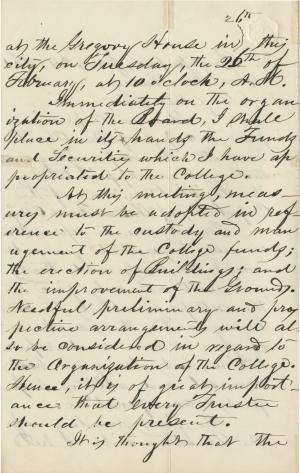 26th
at the Gregory House in this
city, on Tuesday, the 26th of
February, at 10 o'clock, A.M.
Immediately on the organ
ization of the Board, I shall
place in its hands the Funds
and Securities which I have ap
propriated to the College.
At this meeting, meas-
ures must be adopted in ref
erence to the custody and man
agement of the College funds;
the erection of Buildings; and
the improvement of the Grounds.
Needful preliminary and pros
pective arrangements will al
so be considered in regard to
the Organization of the College.
Hence, it is of great import-
ance that every Trustee
should be present.
It is thought that the